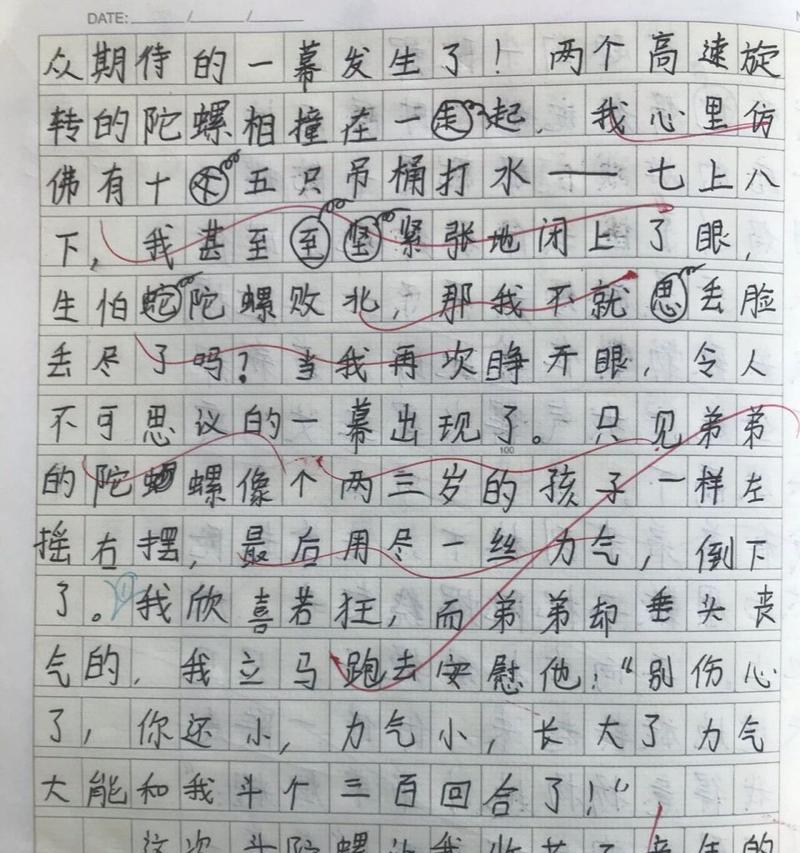 DATE: / /
众期待的一幕发生了！两个高速旋
转的陀螺相撞在一走起，我心里仿
佛有十五只吊桶打水——七上八
下，我甚至至坚紧张地闭上了眼，
生怕蛇陀螺败北，那我不就思丢脸
丢尽了吗？当我再次睁开眼，令人
不可思议的一幕出现了。只见弟弟
100
的陀螺像个两三岁的孩子一样左
摇右摆，最后用尽一丝力气，倒下
了。我欣喜若狂，而弟弟却垂头丧
气的，我立马跑去安慰他：“别伤心
了，你还小，力气小，长大了力气
大能和我斗个三百回合了！”
这次斗陀螺让我收获了童年的